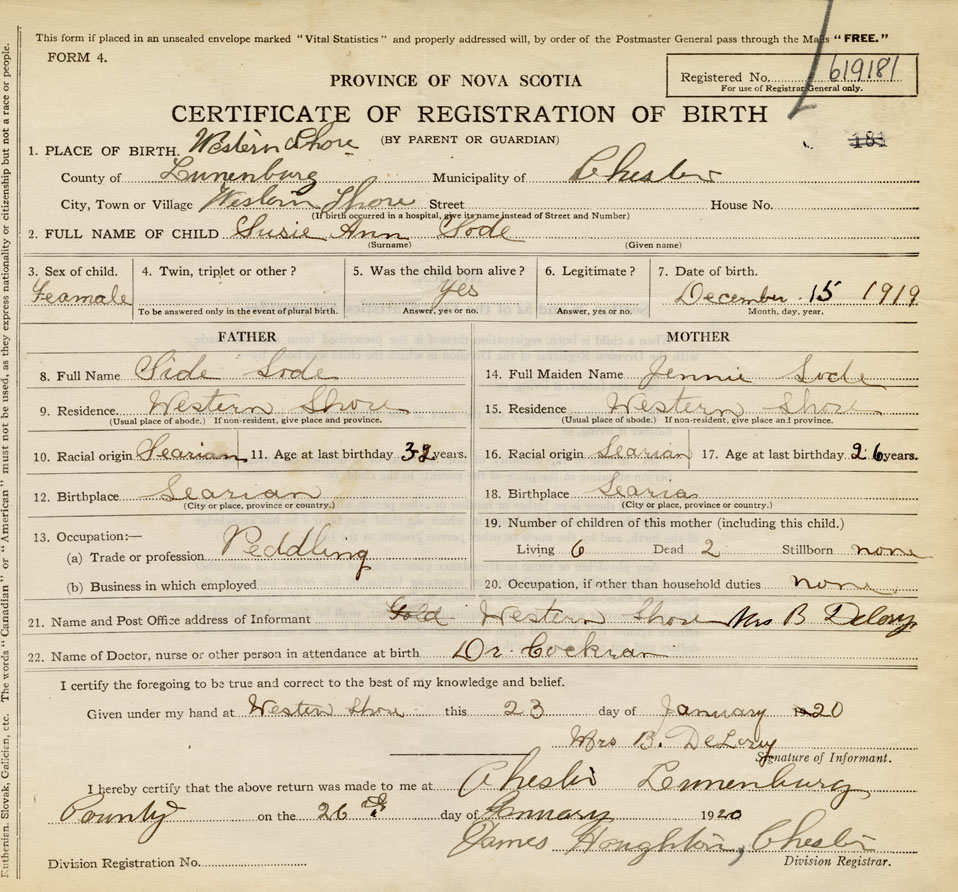 This form if placed in an unsealed envelope marked "Vital Statistics" and properly addressed will, by order of the Postmaster General pass through the Mails "FREE."
FORM 4.
Registered No. 619181
For use of Registrar General only.
PROVINCE OF NOVA SCOTIA
CERTIFICATE OF REGISTRATION OF BIRTH
(BY PARENT OR GUARDIAN)
181
1. PLACE OF BIRTH. Western Shore
County of Lunenburg Municipality of Chester
City, Town or Village Western Shore Street House No.
(If birth occurred in a hospital, give its name instead of Street and Number)
2. FULL NAME OF CHILD Susie Ann Sode
(Surname) (Given name)
3. Sex of child. 4. Twin, triplet or other? 5. Was the child born alive? 6. Legitimate? 7. Date of birth.
Feamale yes December 15 1919
To be answered only in the event of plural birth. Answer, yes or no. Answer, yes or no. Month, day, year.
FATHER MOTHER
8. Full Name Side Sode 14. Full Maiden Name Jennie Sode
9. Residence Western Shore 15. Residence Western Shore
(Usual place of abode.) If non-resident, give place and province. (Usual place of abode.) If non-resident, give place and province.
10. Racial origin Searian 11. Age at last birthday 32 years. 16. Racial origin Searian 17. Age at last birthday 26 years.
12. Birthplace Searian 18. Birthplace Searia
(City or place, province or country.) (City or place, province or country.)
13. Occupation:— 19. Number of children of this mother (including this child.)
(a) Trade or profession Peddling Living 6 Dead 2 Stillborn none
(b) Business in which employed 20. Occupation, if other than household duties none
21. Name and Post Office address of Informant Gold Western Shore Mrs B DeLory
22. Name of Doctor, nurse or other person in attendance at birth Dr. Cockran
I certify the foregoing to be true and correct to the best of my knowledge and belief.
Given under my hand at Western Shore this 23 day of January 1920
Mrs B. DeLory
Signature of Informant.
I hereby certify that the above return was made to me at Chester Lunenburg
County on the 26th day of January 1920
James Houghton, Chester
Division Registrar.
Division Registration No.
Ruthenian, Slovak, Galician, etc. The words "Canadian" or "American" must not be used, as they express nationality or citizenship but not a race or people.